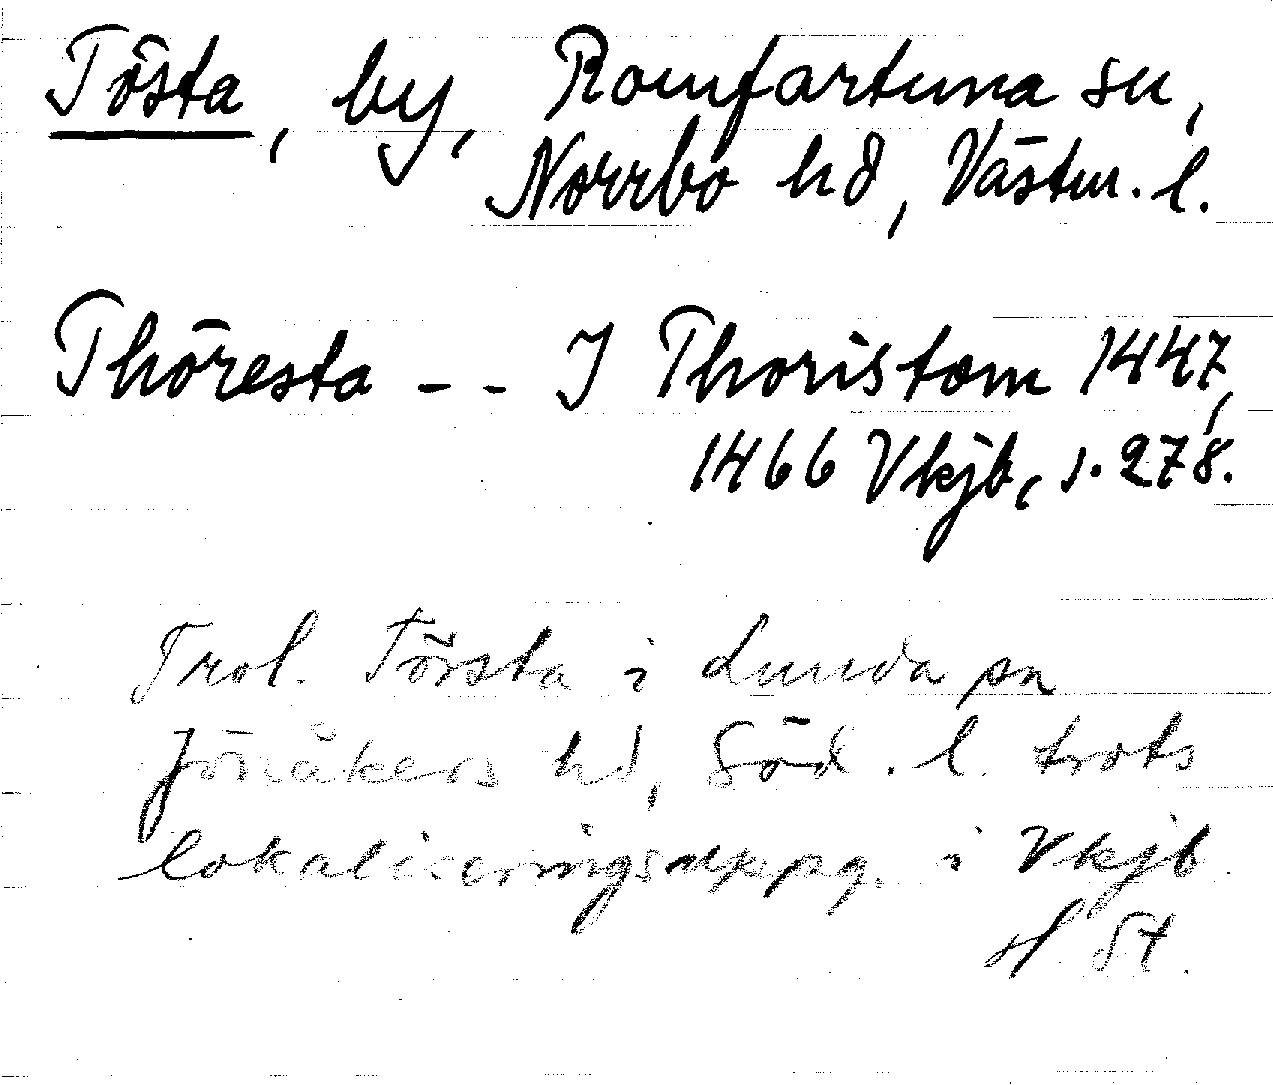 Tösta, by, Romfartuna sn,
Norrbo hd, Västm. l.
Thöresta - - J Thoristom 1447,
1466 Vkjb, s. 278.
Trol. Törsta i Lunda sn
Jönåkers hd, Söd. l. trots
lokaliseringsuppg. i Vkjb
H St.